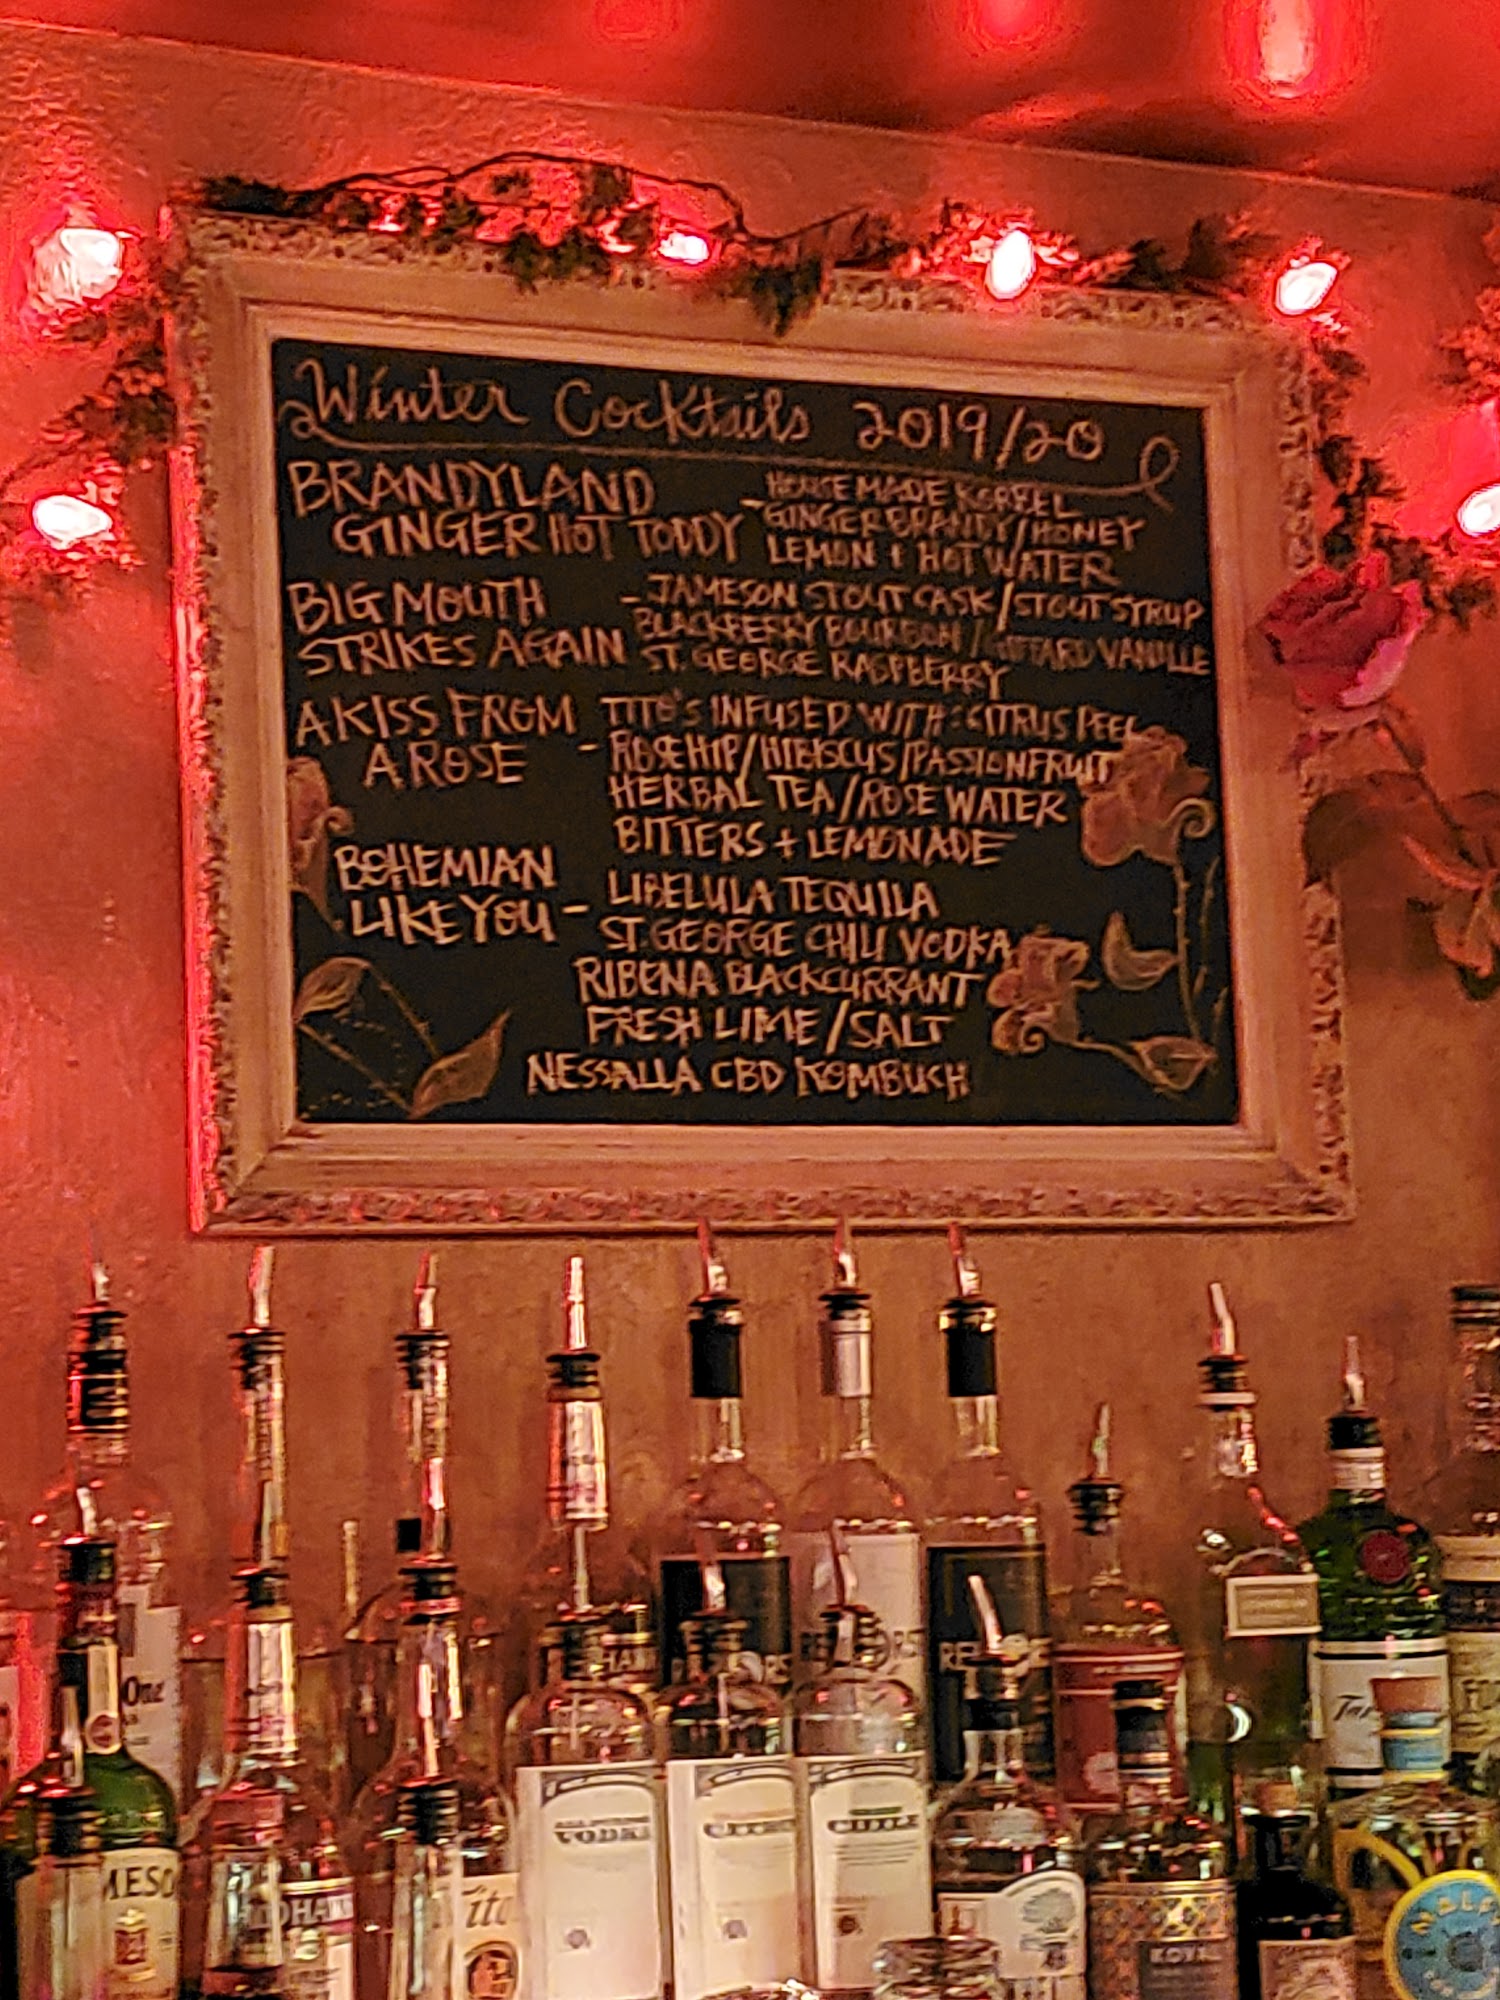 Winter Cocktails 2019/20
BRANDYLAND
GINGER HOT TODDY
- HOUSEMADE KORBEL
GINGER BRANDY/HONEY
LEMON + HOT WATER
BIG MOUTH
STRIKES AGAIN
- JAMESON STOUT CASK/STOUT SYRUP
BLACKBERRY BOURBON/GIFFARD VANILLE
ST. GEORGE RASPBERRY
A KISS FROM
A ROSE -
TITO'S INFUSED WITH: CITRUS PEEL
ROSEHIP/HIBISCUS/PASSIONFRUIT
HERBAL TEA/ROSE WATER
BITTERS + LEMONADE
BOHEMIAN
LIKE YOU -
LIBELULA TEQUILA
ST. GEORGE CHILI VODKA
RIBENA BLACKCURRANT
FRESH LIME/SALT
NESSALLA CBD KOMBUCH
One
VODKA
MESO
Tito
KOVAL